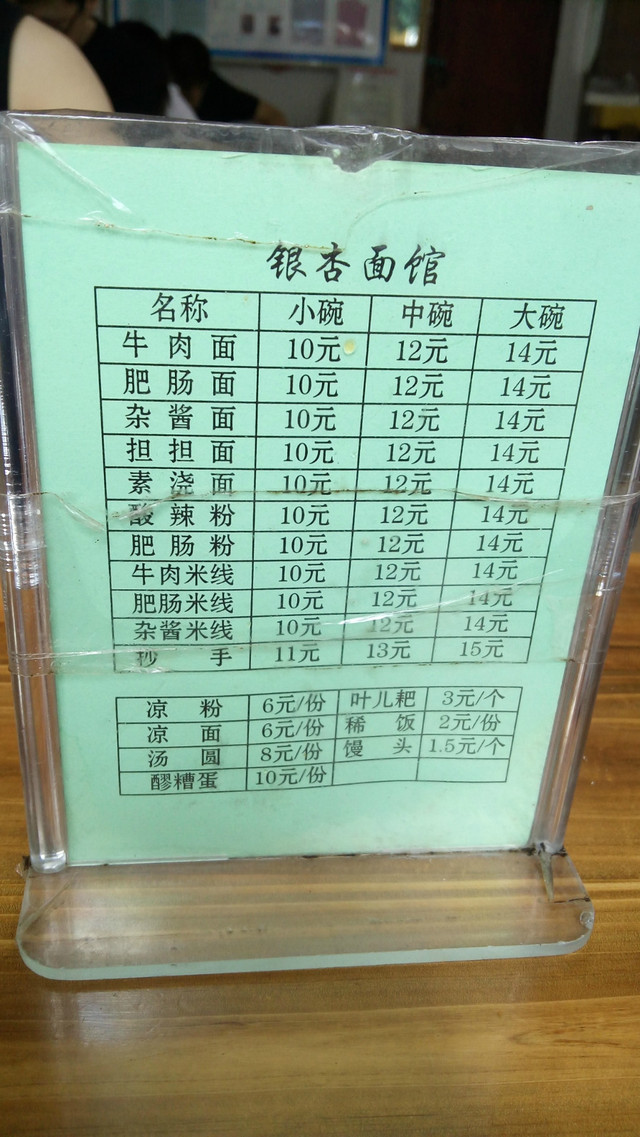 银杏面馆
名称 小碗 中碗 大碗
牛肉面 10元 12元 14元
肥肠面 10元 12元 14元
杂酱面 10元 12元 14元
担担面 10元 12元 14元
素浇面 10元 12元 14元
酸辣粉 10元 12元 14元
肥肠粉 10元 12元 14元
牛肉米线 10元 12元 14元
肥肠米线 10元 12元 14元
杂酱米线 10元 12元 14元
抄手 11元 13元 15元
凉粉 6元/份 叶儿耙 3元/个
凉面 6元/份 稀饭 2元/份
汤圆 8元/份 馒头 1.5元/个
醪糟蛋 10元/份